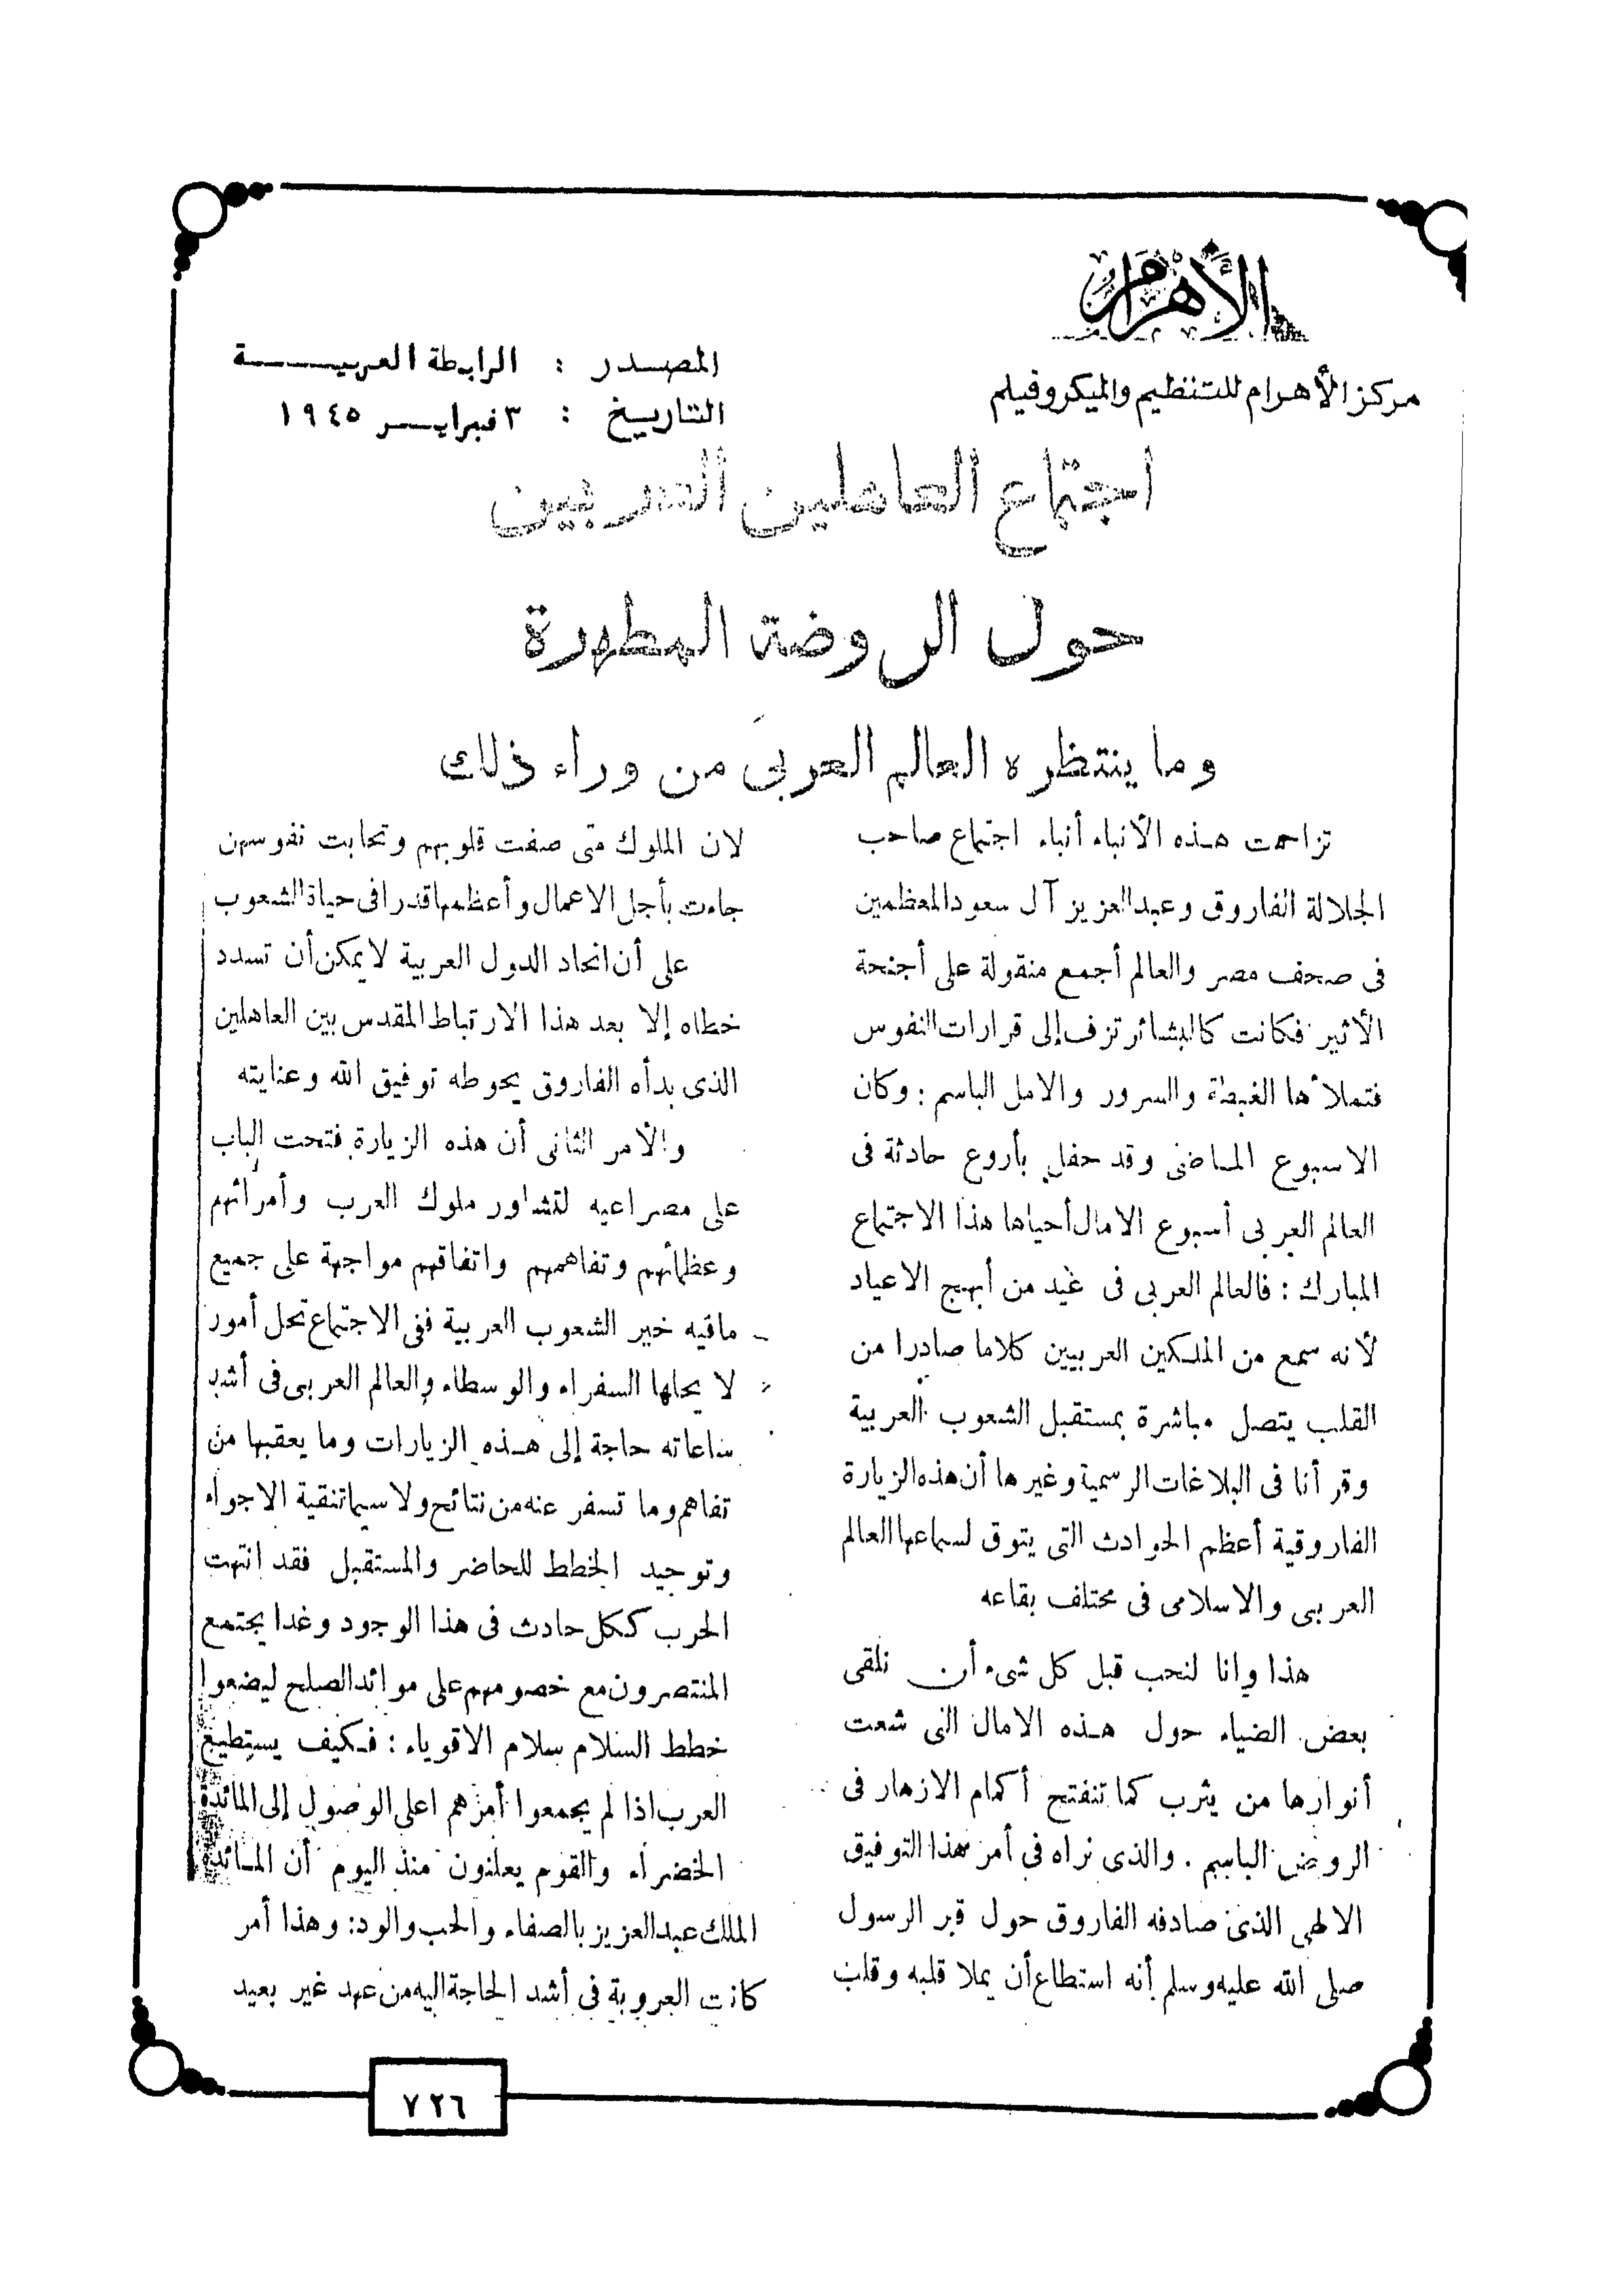 الأهرام
مركز الأهرام للتنظيم والميكروفيلم
المصدر : الرابطة العربية
التاريخ : ٣ فبراير ١٩٤٥
اجتماع العاهلين العربيين
حول الروضة المطهرة
وما ينتظره العالم العربى من وراء ذلك
تزاحمت هذه الأنباء أنباء اجتماع صاحب
الجلالة الفاروق وعبد العزيز آل سعود المعظمين
فى صحف مصر والعالم أجمع منقولة على أجنحة
الأثير فكانت كالبشائر تزف إلى قرارات النفوس
فتملأها الغبطة والسرور والامل الباسم : وكان
الاسبوع الماضى وقد حفل بأروع حادثة فى
العالم العربى أسبوع الامال أحياها هذا الاجتماع
المبارك : فالعالم العربى فى عيد من أبهج الاعياد
لأنه سمع من الملكين العربيين كلاما صادرا من
القلب يتصل مباشرة بمستقبل الشعوب العربية
وقرأنا فى البلاغات الرسمية وغيرها أن هذه الزيارة
الفاروقية أعظم الحوادث التى يتوق لسماعها العالم
العربى والاسلامى فى مختلف بقاعه
هذا وإنا لنحب قبل كل شىء أن نلقى
بعض الضياء حول هذه الامال التى شعت
أنوارها من يثرب كما تنفتح أكمام الازهار فى
الروض الباسم . والذى نراه فى أمر هذا التوفيق
الالهى الذى صادفه الفاروق حول قبر الرسول
صلى الله عليه وسلم أنه استطاع أن يملا قلبه وقلب
الملك عبد العزيز بالصفاء والحب والود: وهذا أمر
كانت العروبة فى أشد الحاجة اليه من عهد غير بعيد
لان الملوك متى صفت قلوبهم وتحابت نفوسهن
جاءت بأجل الاعمال وأعظمها قدرا فى حياة الشعوب
على أن اتحاد الدول العربية لا يمكن أن تسدد
خطاه إلا بعد هذا الارتباط المقدس بين العاهلين
الذى بدأه الفاروق يحوطه توفيق الله وعنايته
والأمر الثانى أن هذه الزيارة فتحت الباب
على مصراعيه لتشاور ملوك العرب وأمرائهم
وعظمائهم وتفاهمهم واتفاقهم مواجهة على جميع
مافيه خير الشعوب العربية ففى الاجتماع تحل أمور
لا يحلها السفراء والوسطاء والعالم العربى فى أشد
ساعاته حاجة إلى هذه الزيارات وما يعقبها من
تفاهم وما تسفر عنه من نتائج ولا سيما تنقية الاجواء
وتوحيد الخطط للحاضر والمستقبل فقد انتهت
الحرب ككل حادث فى هذا الوجود وغدا يجتمع
المنتصرون مع خصومهم على موائد الصلح ليضعوا
خطط السلام سلام الاقوياء : فكيف يستطيع
العرب اذا لم يجمعوا أمرهم اعلى الوصول إلى المائدة
الخضراء والقوم يعلنون منذ اليوم أن المائدة
٧٢٦